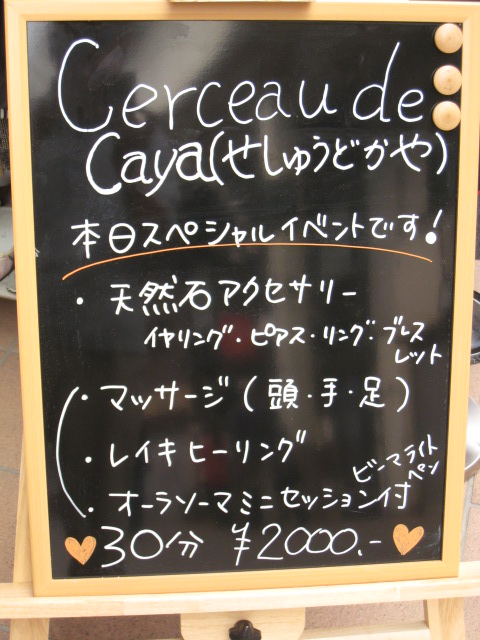 Cerceau de
Caya(せしゅうどかや)
本日スペシャルイベントです!
・天然石アクセサリー
イヤリング・ピアス・リング・ブレス
レット
・マッサージ(頭・手・足)
・レイキヒーリング
ビーマライト
ペン
・オーラソーマミニセッション付
30分 ¥2000.-